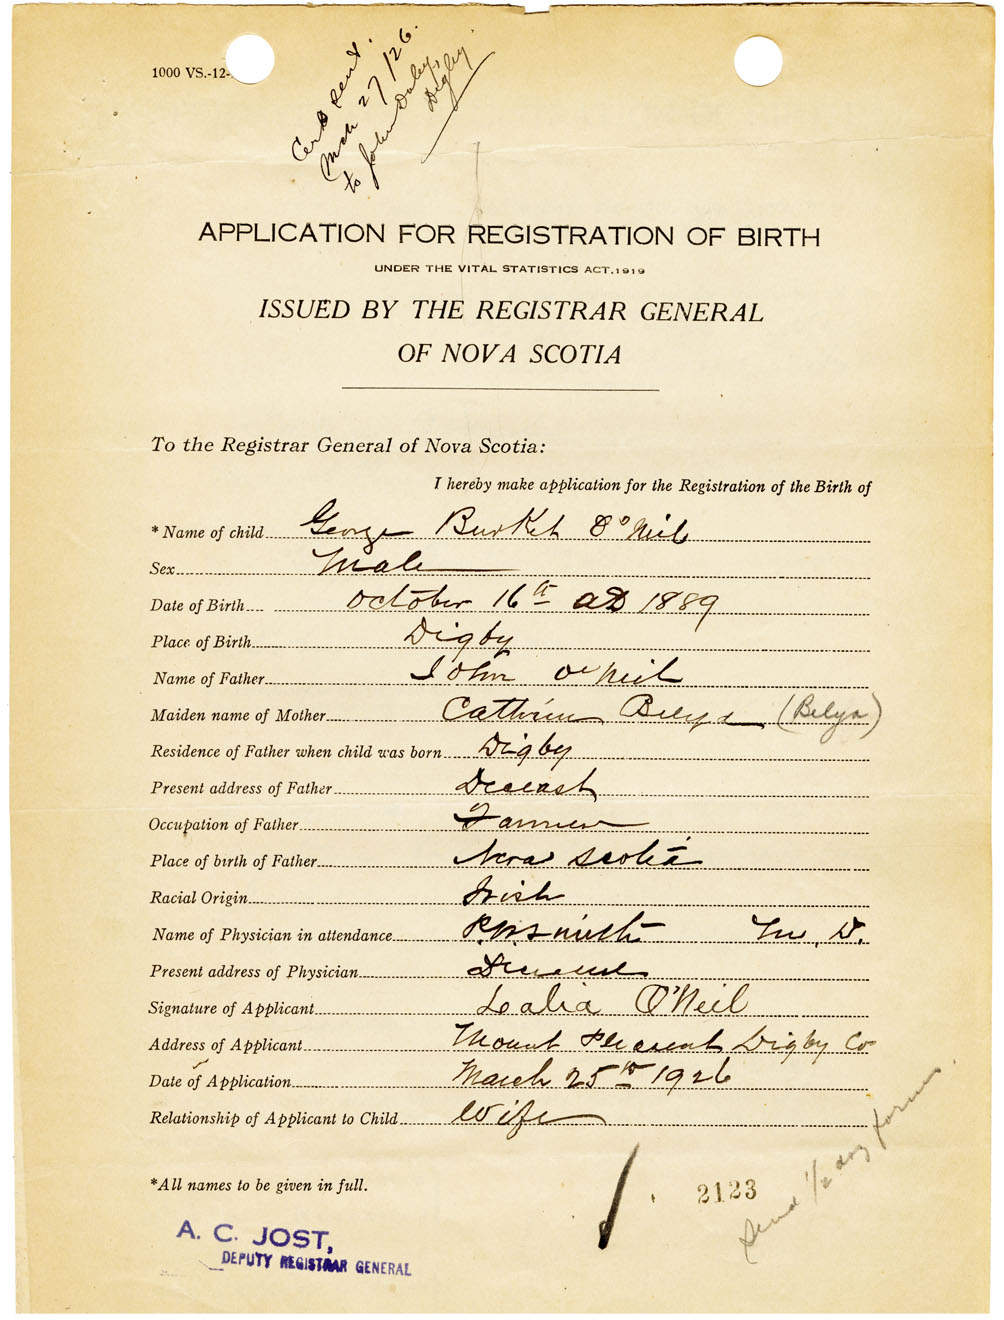 1000 VS.-12-
Cert sent.
Mch 27/26.
to John Daley,
Digby.
APPLICATION FOR REGISTRATION OF BIRTH
UNDER THE VITAL STATISTICS ACT, 1919
ISSUED BY THE REGISTRAR GENERAL
OF NOVA SCOTIA
To the Registrar General of Nova Scotia:
I hereby make application for the Registration of the Birth of
* Name of child George Burket O'Neil
Sex Male
Date of Birth October 16th AD 1889
Place of Birth Digby
Name of Father John O'Neil
Maiden name of Mother Cathrien Belyea (Belya)
Residence of Father when child was born Digby
Present address of Father Deceast
Occupation of Father Farmer
Place of birth of Father Nova Scotia
Racial Origin Irish
Name of Physician in attendance Smith M. D.
Present address of Physician Deceased
Signature of Applicant Lalia O'Neil
Address of Applicant Mount Plesent Digby Co
Date of Application March 25th 1926
Relationship of Applicant to Child Wife
*All names to be given in full.
2123
Send 1/2 doz forms.
A. C. JOST,
DEPUTY REGISTRAR GENERAL